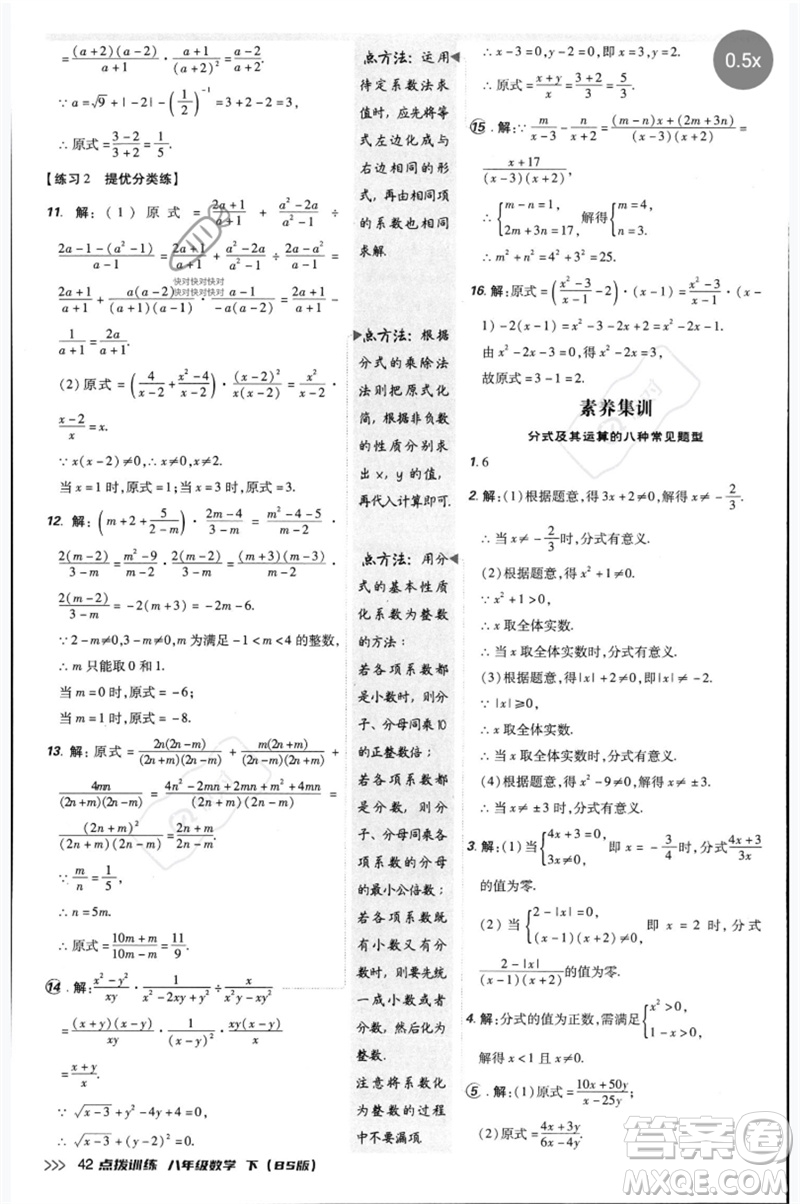 = (a+2)(a-2)/(a+1) · (a+1)/(a+2)² = (a-2)/(a+2).
∵ a=√9+|-2|-(1/2)⁻¹=3+2-2=3,
∴ 原式=(3-2)/(3+2)=1/5.
【练习2 提优分类练】
11. 解：(1) 原式 = (2a+1)/(a+1) + (a²-2a)/(a²-1) ÷
(2a-1-(a²-1))/(a-1) = (2a+1)/(a+1) + (a²-2a)/(a²-1) ÷ (2a-a²)/(a-1) =
(2a+1)/(a+1) + a(a-2)/((a+1)(a-1)) · (a-1)/(-a(a-2)) = (2a+1)/(a+1) -
1/(a+1) = 2a/(a+1).
(2) 原式=(4/(x-2)+(x²-4)/(x-2))·(x-2)²/x=x²/(x-2)·
(x-2)²/x=x²-2x.
∵ x(x-2)≠0，∴ x≠0，x≠2.
当 x=1 时，原式=1²-2×1=-1.
12. 解：(m+2+5/(2-m))·(2m-4)/(3-m)=(m²-4-5)/(m-2)·
2(m-2)/(3-m)=(m²-9)/(m-2)·2(m-2)/(3-m)=(m-3)(m+3)/(m-2)·
2(m-2)/(3-m)=-2(m+3)=-2m-6.
∵ 2-m≠0,3-m≠0,m 为满足 -1<m<4 的整数,
∴ m 只能取 0 和 1.
当 m=0 时,原式=-6;
当 m=1 时,原式=-8.
13. 解：原式 = 2n(2n-m)/((2n+m)(2n-m)) + m(2n+m)/((2n+m)(2n-m)) +
4mn/((2n+m)(2n-m)) = (4n²-2mn+2mn+m²+4mn)/((2n+m)(2n-m)) =
(2n+m)²/((2n+m)(2n-m))=(2n+m)/(2n-m).
∵ m/n=1/5,
∴ n=5m.
∴ 原式=(10m+m)/(10m-m)=11/9.
14. 解：(x²-y²)/xy·1/(x²-2xy+y²)÷x/(x²y-xy²)
=(x+y)(x-y)/xy·1/(x-y)²·xy(x-y)/x
=(x+y)/x.
∵ √(x-3)+y²-4y+4=0,
∴ √(x-3)+(y-2)²=0.
>>> 42 点拨训练 八年级数学 下（BS版）
点方法：运用
待定系数法求
值时，应先将等
式左边化成与
右边相同的形
式，再由相同项
的系数也相同
求解.
点方法：根据
分式的乘除法
法则把原式化
简，根据非负数
的性质分别求
出 x，y 的值，
再代入计算即可.
点方法：用分
式的基本性质
化系数为整数
的方法：
若各项系数都
是小数时，则分
子、分母同乘10
的正整数倍；
若各项系数都
是分数，则分
子、分母同乘各
项系数的分母
的最小公倍数；
若各项系数既
有小数又有分
数时，则要先统
一成小数或者
分数，然后化为
整数.
注意将系数化
为整数的过程
中不要漏项.
∴ x-3=0，y-2=0，即 x=3，y=2.
∴ 原式=(x+y)/x=(3+2)/3=5/3.
15. 解：∵ m/(x-3)-n/(x+2)=((m-n)x+(2m+3n))/((x-3)(x+2))=
(x+17)/((x-3)(x+2)),
∴ {m-n=1, 2m+3n=17, 解得{m=4, n=3.
∴ m²+n²=25.
16. 解：原式=((x²-3)/(x-1)-2)·(x-1)=(x²-3)/(x-1)·(x-
1)-2(x-1)=x²-3-2x+2=x²-2x-1.
由 x²-2x-3=0，得 x²-2x=3.
故原式=3-1=2.
素养集训
分式及其运算的八种常见题型
1. 6
2. 解：(1)根据题意，得 3x+2≠0，解得 x≠-2/3.
∴ 当 x≠-2/3时，分式有意义.
(2)根据题意，得 x²+1≠0.
∵ x²+1>0.
∴ x 取全体实数.
∴ 当 x 取全体实数时，分式有意义.
(3)根据题意，得 |x|+2≠0.
∵ |x|≥0,
∴ x 取全体实数.
∴ 当 x 取全体实数时，分式有意义.
(4)根据题意，得 x²-9≠0，解得 x≠±3.
∴ 当 x≠±3 时，分式有意义.
3. 解：(1)当{4x+3=0, 3x≠0, 即 x=-3/4时，分式(4x+3)/3x
的值为零.
(2) 当{2-|x|=0, (x-1)(x+2)≠0, 即 x=2 时，分式
(2-|x|)/((x-1)(x+2))的值为零.
4. 解：分式的值为正数，需满足{x²>0, 1-x>0,
解得 x<1 且 x≠0.
5. 解：(1)原式=(10x+50y)/(x-25y).
(2)原式=(10x+8y)/(6x-4y).
0.5x
快对快对快对
快对快对快对
答案圈